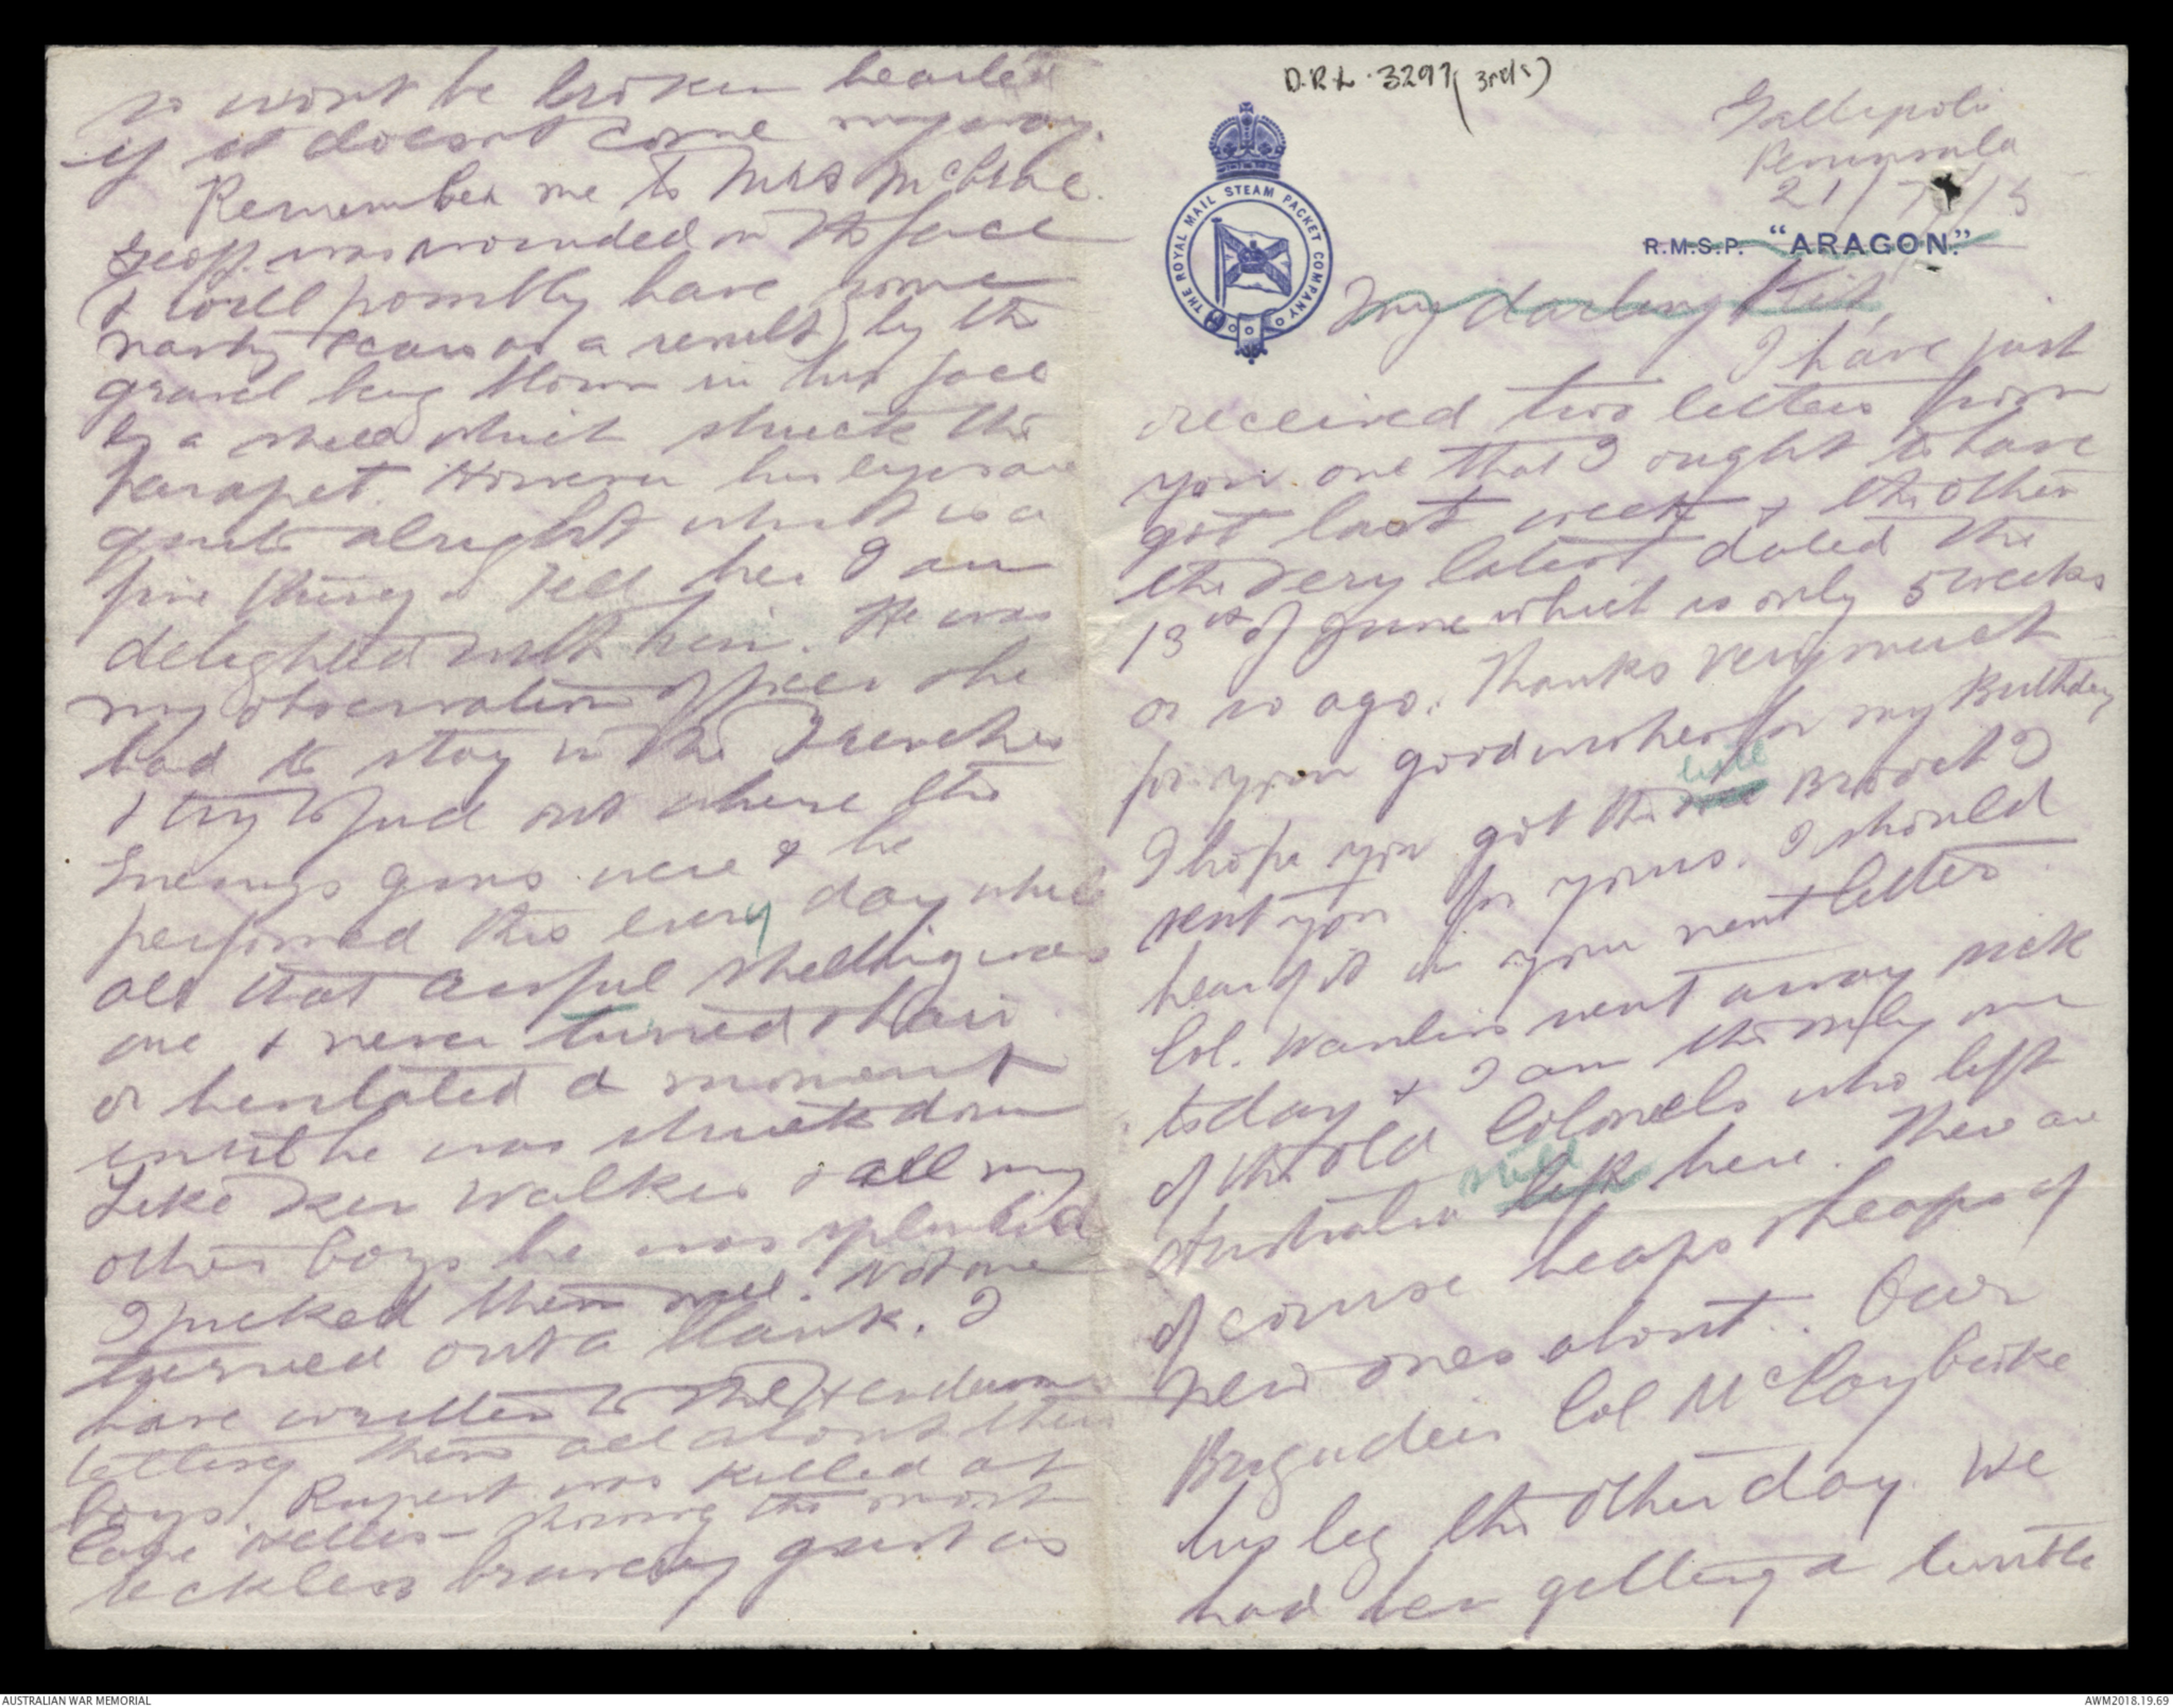 D.R.L. 3297 (3rd s)
THE ROYAL MAIL STEAM PACKET COMPANY
Gallipoli
Peninsula
21/7/15
R.M.S.P. "ARAGON."
My darling Kit,
I have just
received two letters from
you one that I ought to have
got last week & the other
the very latest dated the
13th of June which is only 5 weeks
or so ago. Thanks very much
for your good wishes for my Birthday
I hope you got the little Brooch I
sent you for yours. I should
hear of it in your next letter
Col. Wanliss went away sick
today & I am the only one
of the old Colonels who left
Australia left still here. There are
of course heaps & heaps of
new ones about. Our
Brigadier Col McCay broke
his leg the other day. We
had been getting a
so wont be broken hearted
if it doesnt come my way.
Remember me to Mrs McCrae.
Geoff. was wounded in the face
& will possibly have some
nasty scars as a result, by the
gravel being blown in his face
by a shell which struck the
parapet. However his eyes are
quite alright which is a
fine thing. Tell her I am
delighted with him. He was
my observation officer & he
had to stay in the Trenches
& try to find out where the
Enemys guns were & he
performed this every day while
all that awful shelling was
one & never turned a hair
or hesitated a moment
until he was struck down
Like Ken Walker & all my
other boys he was splendid
I picked them well. Not one
turned out a blank. I
have written to the Hendersons
telling them all about their
boys. Rupert was killed at
Cape Helles - showing the most
reckless bravery quite as
AUSTRALIAN WAR MEMORIAL
AWM2018.19.69